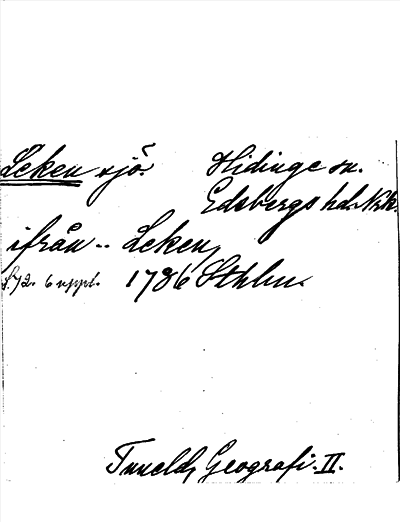 Leken sjö. Hidinge sn.
Edsbergs hd. Nrk.
ifrån .. Leken,
s. 72. 6 uppl. 1786 Sthlm.
Tuneld, Geografi. II.